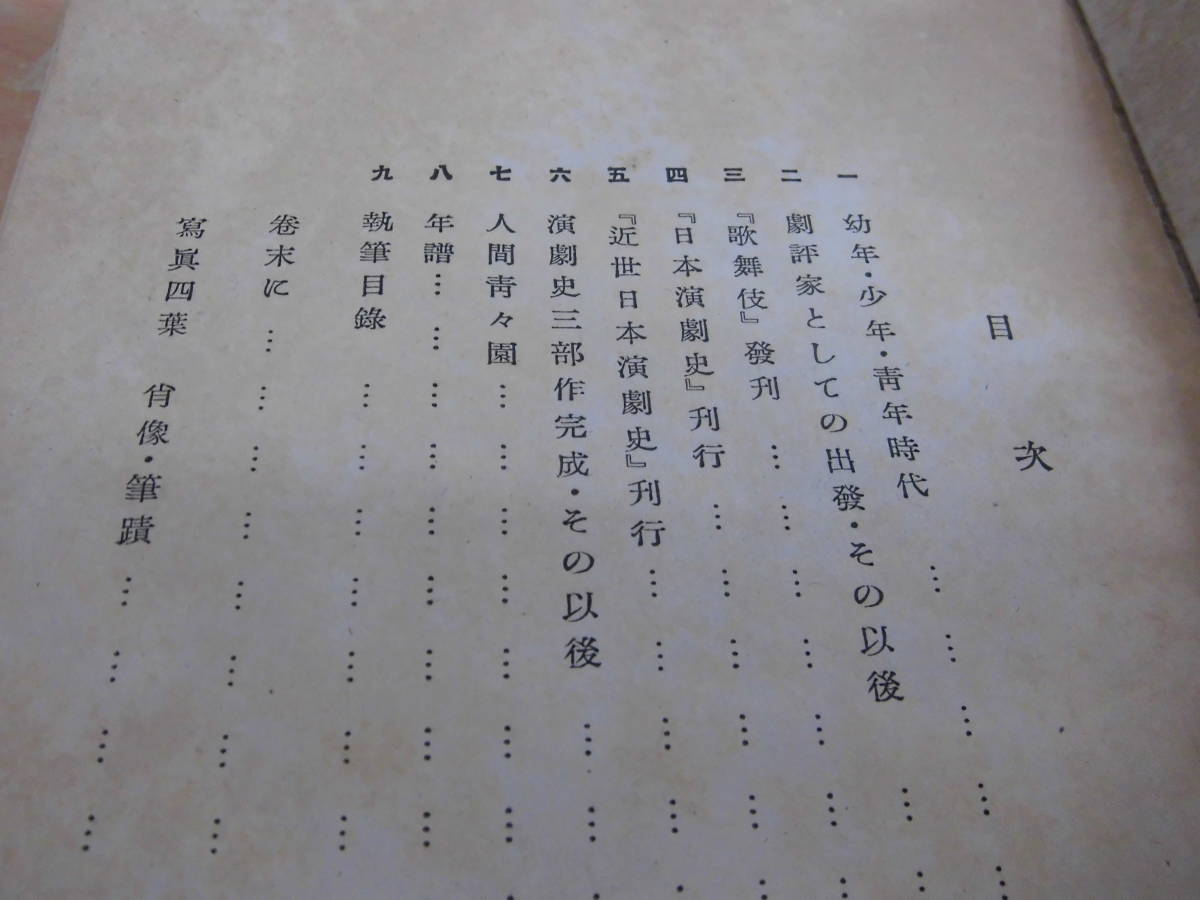 目次
一 幼年・少年・靑年時代………………
二 劇評家としての出發・その以後……
三 『歌舞伎』發刊………………………
四 『日本演劇史』刊行…………………
五 『近世日本演劇史』刊行……………
六 演劇史三部作完成・その以後………
七 人間靑々園……………………………
八 年譜……………………………………
九 執筆目錄………………………………
卷末に………………………
寫眞四葉 肖像・筆蹟……………